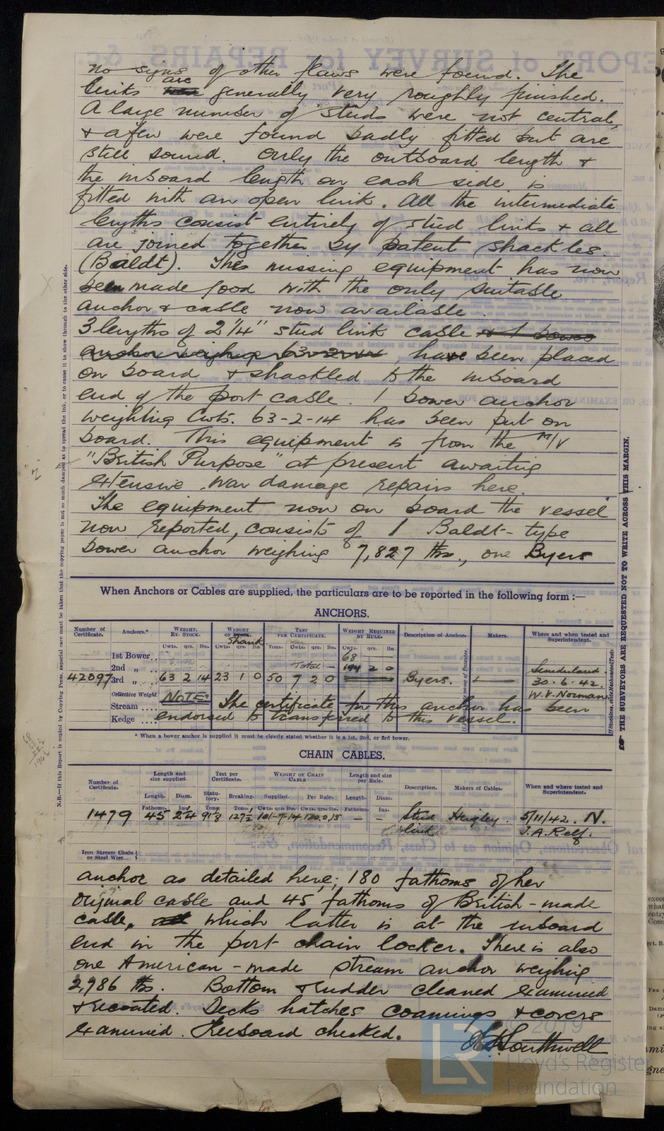 no signs of other flaws were found. The
links are generally very roughly finished.
A large number of studs were not central,
& a few were found badly fitted but are
still sound. Only the outboard length &
the inboard length on each side is
fitted with an open link. All the intermediate
lengths consist entirely of stud links & all
are joined together by patent shackles.
(Baldt). This missing equipment has now
been made good with the only suitable
anchor & cable now available.
3 lengths of 2 1/4" stud link cable & 1 bower
anchor weighing 63-2-14 have been placed
on board & shackled to the inboard
end of the port cable. 1 bower anchor
weighing Cwts. 63-2-14 has been put on
board. This equipment is from the M/V
"British Purpose" at present awaiting
extensive war damage repairs here.
The equipment now on board the vessel
now reported, consists of 1 Baldt-type
bower anchor weighing 7,827 lbs., one Byers
When Anchors or Cables are supplied, the particulars are to be reported in the following form :—
ANCHORS.
Number of Certificate. Anchors.* Weight, Ex. Stock. Weight of Shank Test per Certificate. Weight Required by Rule. Description of Anchor. Makers. Where and when tested and Superintendent.
Cwts. qrs. lbs. Cwts. qrs. lbs. Tons. Cwts. qrs. lbs. Cwts. qrs. lbs.
1st Bower 68
2nd " Total - 194 2 0 Sunderland
42097 3rd " 63 2 14 23 1 0 50 7 2 0 Byers. — 30.6.42.
Collective Weight W.V. Norman
Stream NOTE: The certificate for this anchor has been
Kedge endorsed & transferred to this vessel.
* When a bower anchor is supplied it must be clearly stated whether it is a 1st, 2nd, or 3rd bower.
CHAIN CABLES.
Number of Certificate. Length and size supplied. Test per Certificate. Weight of Chain Cable Length and size per Rule. Description. Makers of Cables. Where and when tested and Superintendent.
Length. Diam. Statutory. Breaking. Supplied. Per Rule. Length. Diam.
1479 45 2 1/4 — — Stud Heigley. 5/11/42. N.
Link J.A. Relf.
Iron Stream Chain or Steel Wire
anchor as detailed here; 180 fathoms of her
original cable and 45 fathoms of British-made
cable, which latter is at the inboard
end in the port chain locker. There is also
one American-made stream anchor weighing
2,986 lbs. Bottom & rudder cleaned examined
& recoated. Decks hatches coamings & covers
examined. Freeboard checked.
Southwell
N.B.—If this Report is copied by Copying Press, especial care must be taken that the copying paper is not so much damped as to spread the ink, or to cause it to show through to the other side.
THE SURVEYORS ARE REQUESTED NOT TO WRITE ACROSS THIS MARGIN.
LR
2019
Lloyd's Register
Foundation